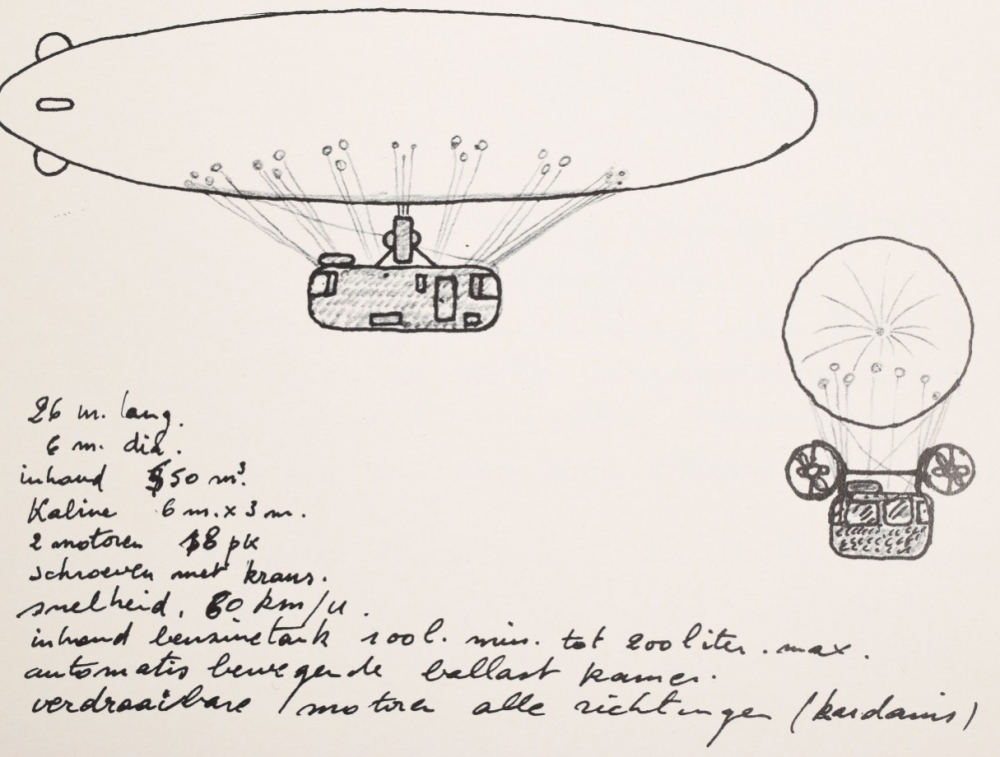 26 m. lang.
6 m. dia.
inhoud 550 m³.
Kabine 6 m. x 3 m.
2 motoren 18 pk
schroeven met krans.
snelheid. 60 km/u.
inhoud benzinetank 100 l. min. tot 200 liter. max.
automatis bewegende ballast kamer.
verdraaibare motoren alle richtingen (kardanis)